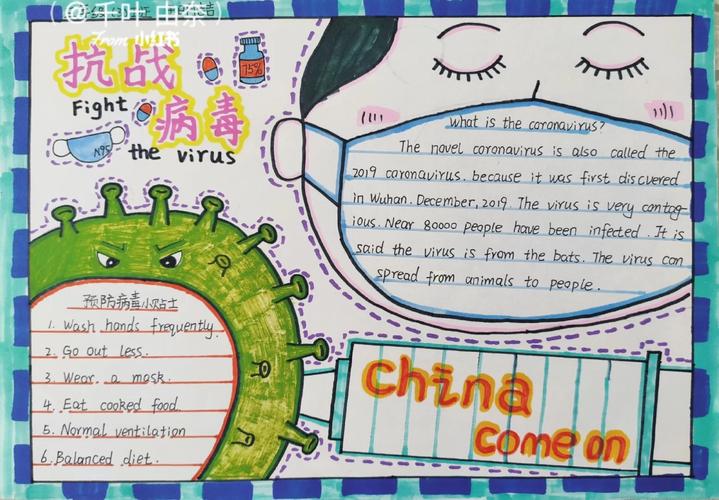 (@千叶由奈)
From 小红书
抗战
Fight
病毒
the virus
75%
N95
What is the coronavirus?
The novel coronavirus is also called the
2019 coronavirus. because it was first discvered
in Wuhan. December, 2019. The virus is very contag-
ious. Near 80000 people have been infected. It is
said the virus is from the bats. The virus can
spread from animals to people.
预防病毒小贴士
1. Wash hands frequently.
2. Go out less.
3. Wear. a mask.
4. Eat cooked food.
5. Normal ventilation
6. Balanced diet.
China
come on